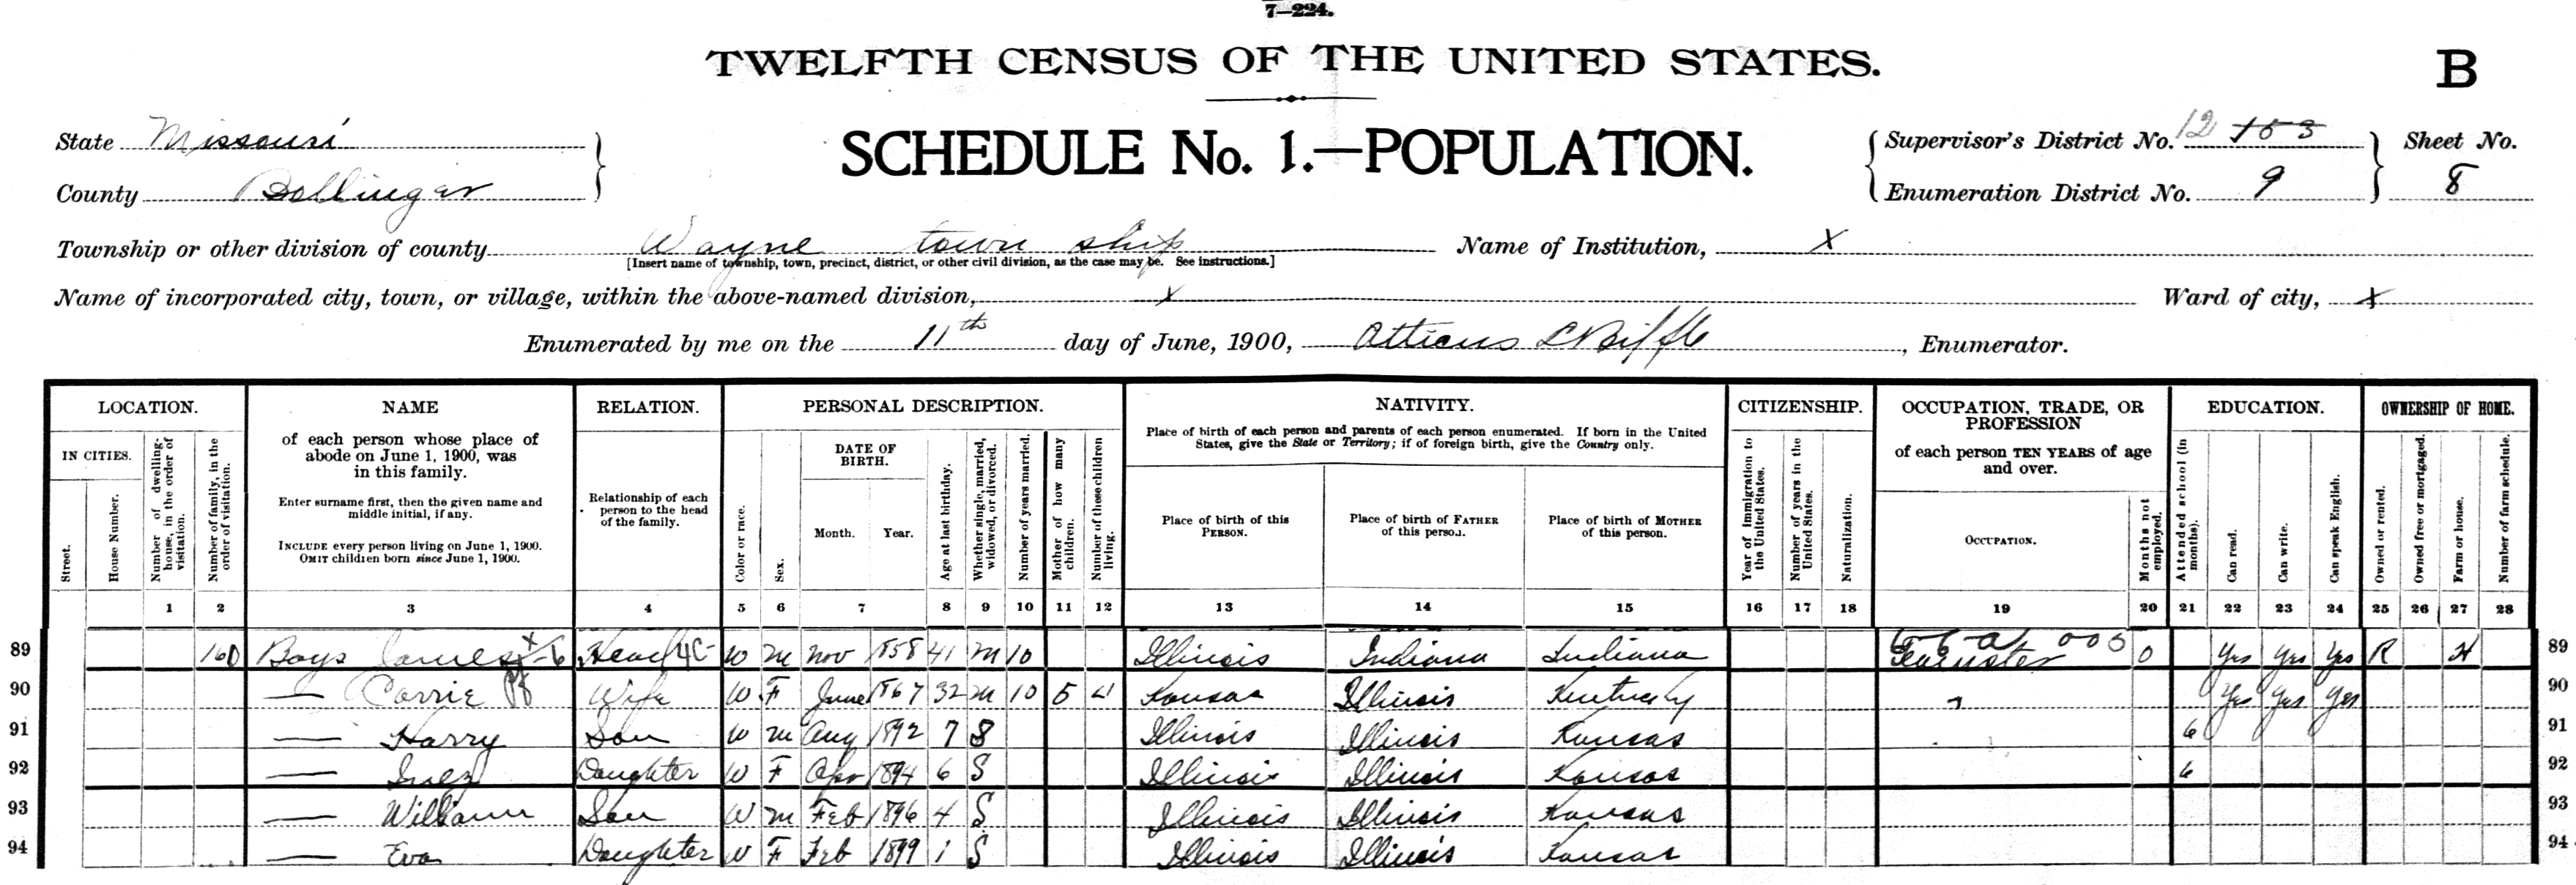 7—224.
TWELFTH CENSUS OF THE UNITED STATES.
B
State Missouri
County Bollinger
SCHEDULE No. 1.—POPULATION.
Supervisor's District No. 12 153
Enumeration District No. 9
Sheet No.
8
Township or other division of county Wayne town ship
[Insert name of township, town, precinct, district, or other civil division, as the case may be. See instructions.]
Name of Institution, X
Name of incorporated city, town, or village, within the above-named division, X
Ward of city, X
Enumerated by me on the 11th day of June, 1900, Atticus L Biffle, Enumerator.
LOCATION.
IN CITIES.
Street.
House Number.
Number of dwelling-house, in the order of visitation.
Number of family, in the order of visitation.
NAME
of each person whose place of
abode on June 1, 1900, was
in this family.
Enter surname first, then the given name and
middle initial, if any.
INCLUDE every person living on June 1, 1900.
OMIT children born since June 1, 1900.
RELATION.
Relationship of each
person to the head
of the family.
PERSONAL DESCRIPTION.
Color or race.
Sex.
DATE OF
BIRTH.
Month.
Year.
Age at last birthday.
Whether single, married, widowed, or divorced.
Number of years married.
Mother of how many children.
Number of these children living.
NATIVITY.
Place of birth of each person and parents of each person enumerated. If born in the United
States, give the State or Territory; if of foreign birth, give the Country only.
Place of birth of this
PERSON.
Place of birth of FATHER
of this person.
Place of birth of MOTHER
of this person.
CITIZENSHIP.
Year of immigration to the United States.
Number of years in the United States.
Naturalization.
OCCUPATION, TRADE, OR
PROFESSION
of each person TEN YEARS of age
and over.
OCCUPATION.
Months not employed.
EDUCATION.
Attended school (in months).
Can read.
Can write.
Can speak English.
OWNERSHIP OF HOME.
Owned or rented.
Owned free or mortgaged.
Farm or house.
Number of farm schedule.
1 2 3 4 5 6 7 8 9 10 11 12 13 14 15 16 17 18 19 20 21 22 23 24 25 26 27 28
89 160 Boys James Head W M Nov 1858 41 M 10 Illinois Indiana Indiana Teamster 0 Yes Yes Yes R H 89
90 — Carrie Wife W F June 1867 32 M 10 5 4 Kansas Illinois Kentucky Yes Yes Yes 90
91 — Harry Son W M Aug 1892 7 S Illinois Illinois Kansas 6 91
92 — Inez Daughter W F Apr 1894 6 S Illinois Illinois Kansas 6 92
93 — William Son W M Feb 1896 4 S Illinois Illinois Kansas 93
94 — Eva Daughter W F Feb 1899 1 S Illinois Illinois Kansas 94